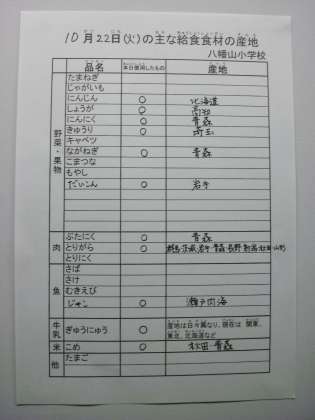 10月22日(火)の主な給食食材の産地
八幡山小学校
品名 本日使用したもの 産地
野菜・果物
たまねぎ
じゃがいも
にんじん ○ 北海道
しょうが ○ 高知
にんにく ○ 青森
きゅうり ○ 埼玉
キャベツ
ながねぎ ○ 青森
こまつな
もやし
だいこん ○ 岩手
肉
ぶたにく ○ 青森
とりがら ○
とりにく
魚
さば
さけ
むきえび
ジャン ○ 瀬戸内海
牛乳 ぎゅうにゅう ○ 産地は日々異なり、現在は 関東、
東北、北海道など
米 こめ ○ 秋田 青森
他 たまご